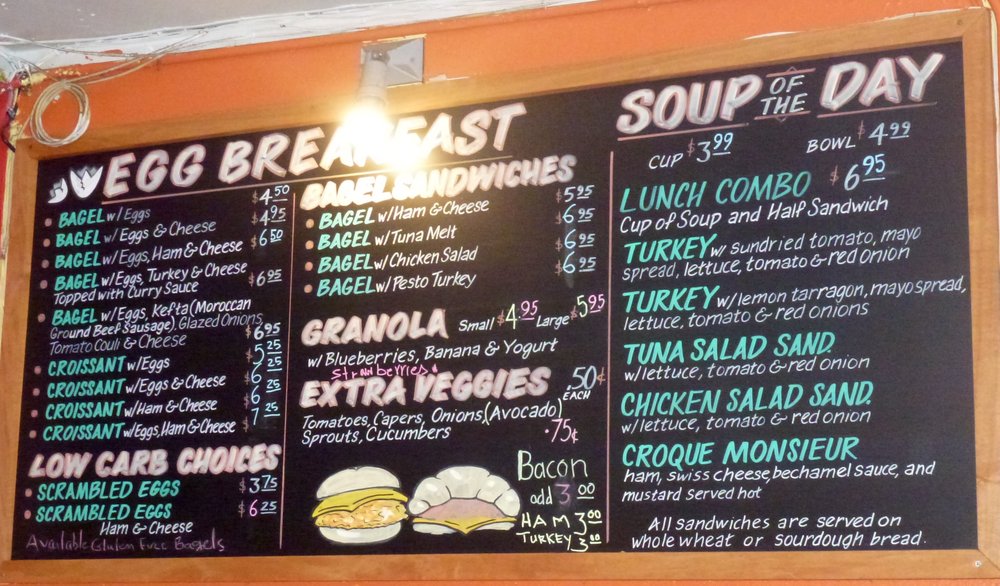 EGG BREAKFAST
BAGEL w/Eggs $4.50
BAGEL w/ Eggs & Cheese $4.95
BAGEL w/Eggs, Ham & Cheese $6.50
BAGEL w/Eggs, Turkey & Cheese
Topped with Curry Sauce $6.95
BAGEL w/Eggs, Kefta (Moroccan
Ground Beef Sausage) Glazed Onions
Tomato Couli & Cheese $6.95
CROISSANT w/Eggs $5.25
CROISSANT w/Eggs & Cheese $6.25
CROISSANT w/Ham & Cheese $6.25
CROISSANT w/Eggs, Ham & Cheese $7.25
LOW CARB CHOICES
SCRAMBLED EGGS $3.75
SCRAMBLED EGGS $6.25
Ham & Cheese
Available Gluten Free Bagels
BAGEL SANDWICHES
BAGEL w/Ham & Cheese $5.95
BAGEL w/Tuna Melt $6.95
BAGEL w/Chicken Salad $6.95
BAGEL w/Pesto Turkey $6.95
GRANOLA Small $4.95 Large $5.95
w/ Blueberries, Banana & Yogurt
Strawberries
EXTRA VEGGIES .50¢ EACH
Tomatoes, Capers, Onions, (Avocado)
Sprouts, Cucumbers .75¢
Bacon
add 3.00
HAM 3.00
TURKEY 3.00
SOUP OF THE DAY
CUP $3.99 BOWL $4.99
LUNCH COMBO $6.95
Cup of Soup and Half Sandwich
TURKEY w/ sundried tomato, mayo
spread, lettuce, tomato & red onion
TURKEY w/lemon tarragon, mayo spread,
lettuce, tomato & red onions
TUNA SALAD SAND.
w/lettuce, tomato & red onion
CHICKEN SALAD SAND.
w/lettuce, tomato & red onion
CROQUE MONSIEUR
ham, swiss cheese, bechamel sauce, and
mustard served hot
All sandwiches are served on
whole wheat or sourdough bread.